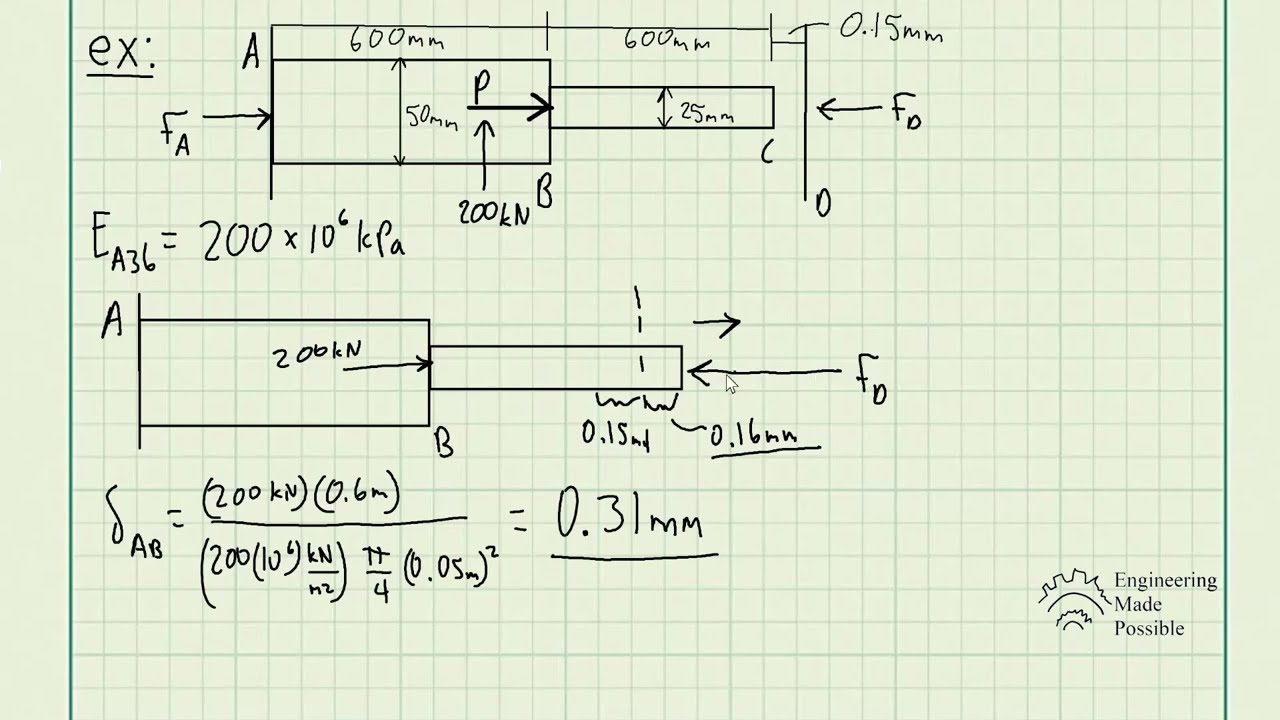 ex:
A
600mm
600mm
0.15mm
P
50mm
25mm
F_A
F_D
200kN
B
C
D
E_A36 = 200 × 10⁶ kPa
A
200kN
F_D
B
0.15mm
0.16mm
δ_AB = (200kN)(0.6m) / (200(10⁶) kN/m²) π/4 (0.05m)² = 0.31mm
Engineering
Made
Possible